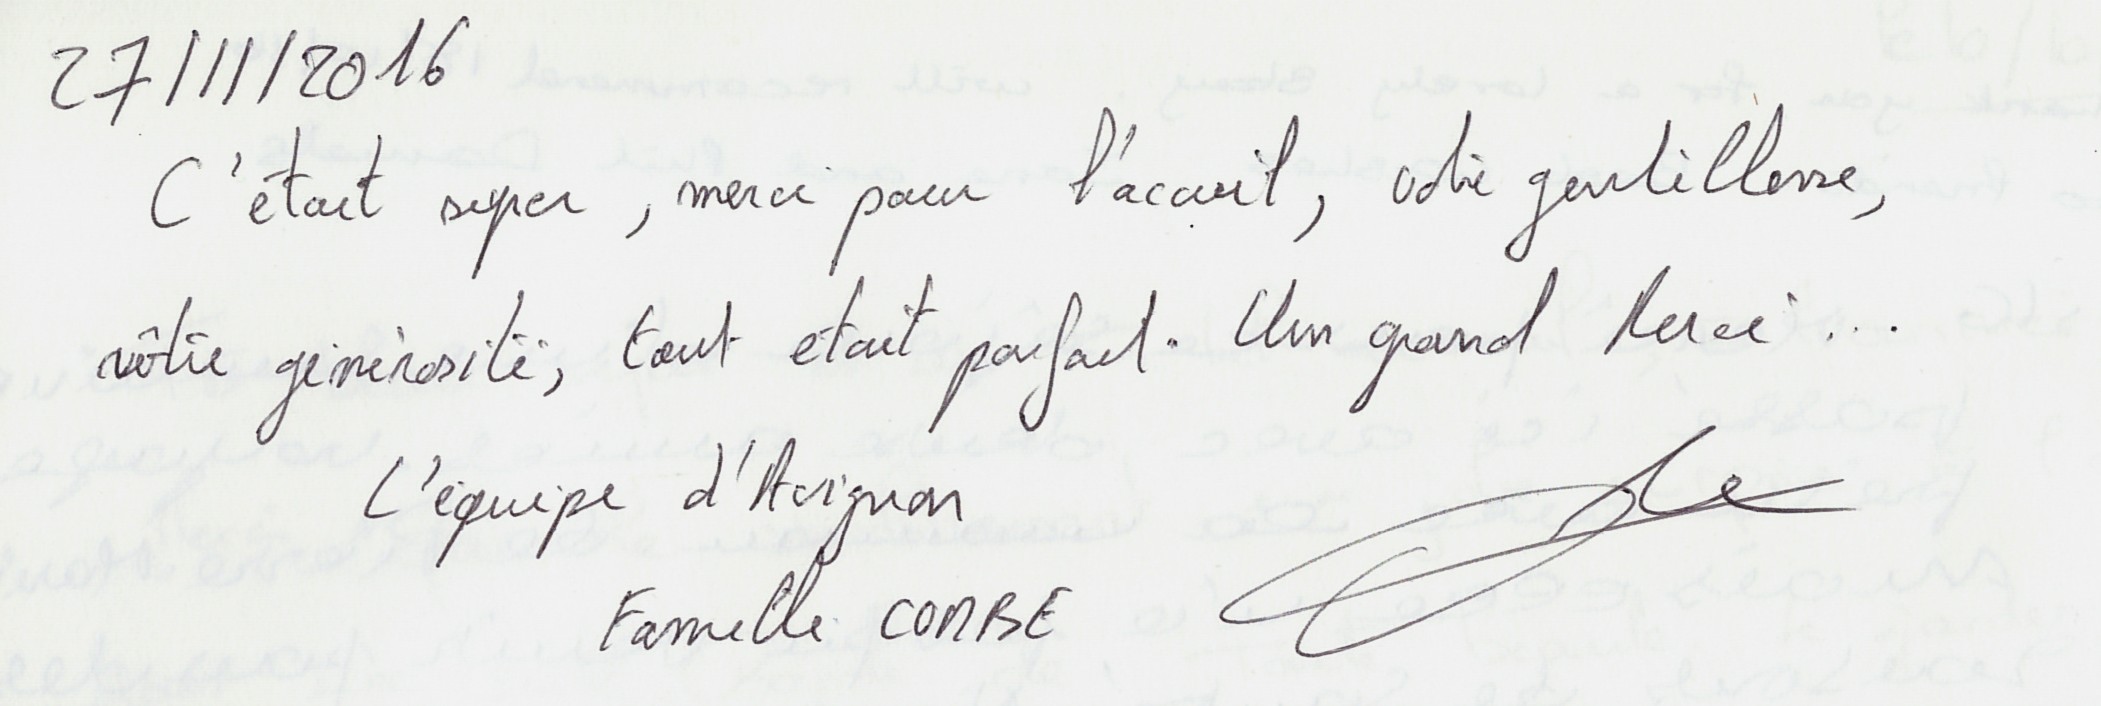 27/11/2016
C'était super, merci pour l'acceuil, votre gentillesse,
vôtre générosité, tout était parfait. Un grand Merci...
L'équipe d'Avignon
Famille COMBE